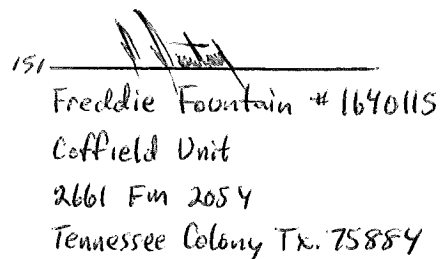 /s/
Freddie Fountain # 1640115
Coffield Unit
2661 Fm 2054
Tennessee Colony Tx. 75884